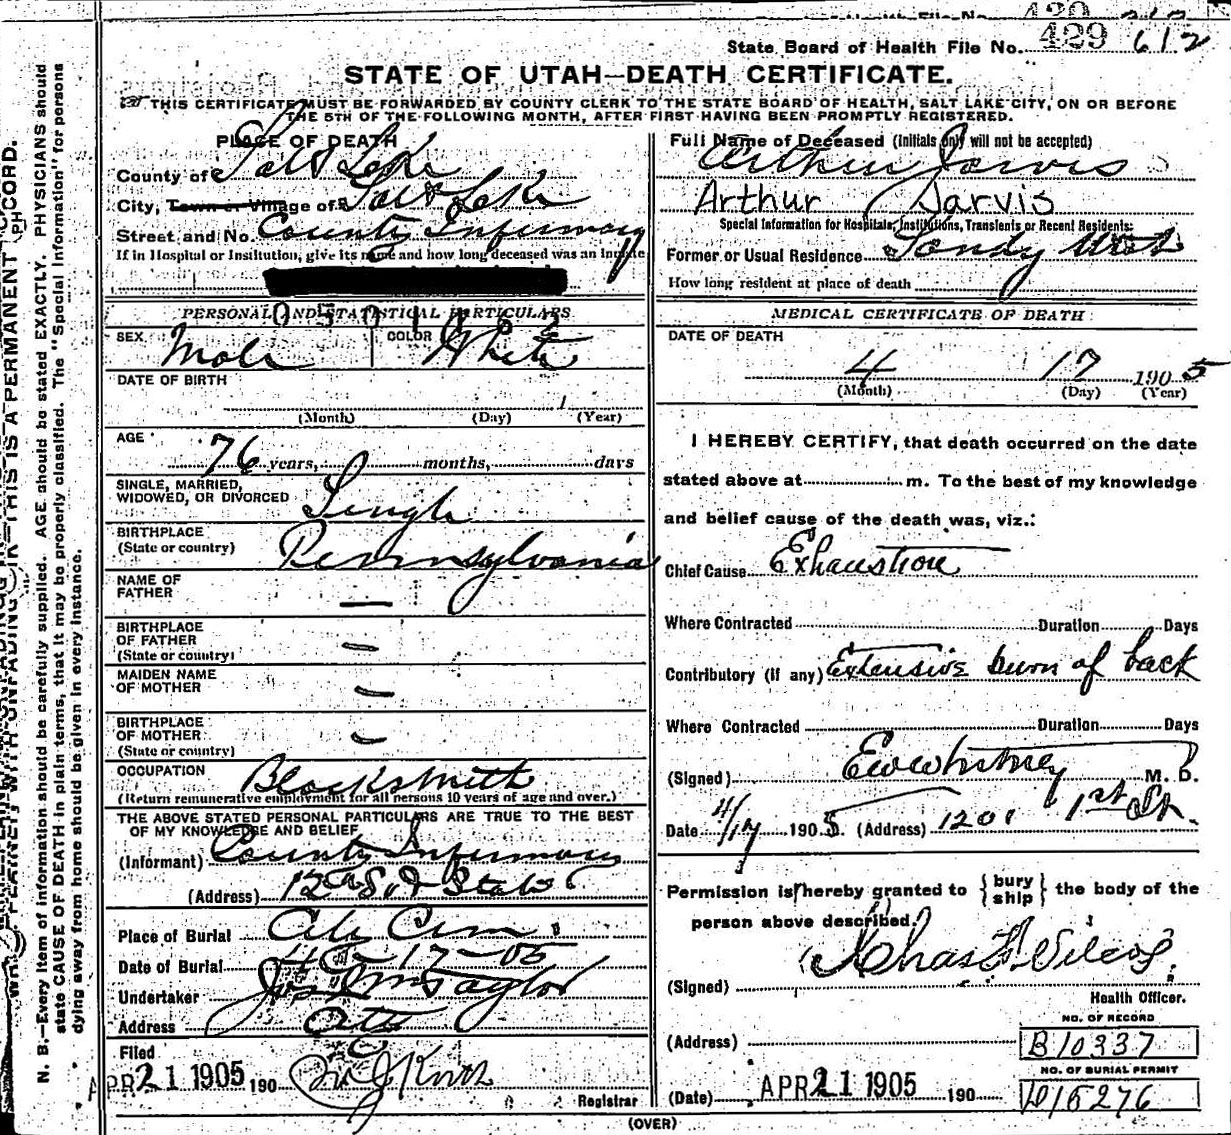 State Board of Health File No. 429 612
STATE OF UTAH—DEATH CERTIFICATE.
THIS CERTIFICATE MUST BE FORWARDED BY COUNTY CLERK TO THE STATE BOARD OF HEALTH, SALT LAKE CITY, ON OR BEFORE
THE 5TH OF THE FOLLOWING MONTH, AFTER FIRST HAVING BEEN PROMPTLY REGISTERED.
PLACE OF DEATH
County of Salt Lake
City, Town or Village of Salt Lake
Street and No. County Infirmary
If in Hospital or Institution, give its name and how long deceased was an inmate
PERSONAL AND STATISTICAL PARTICULARS
SEX Male COLOR White
DATE OF BIRTH
(Month) (Day) (Year)
AGE 76 years, months, days
SINGLE, MARRIED,
WIDOWED, OR DIVORCED Single
BIRTHPLACE
(State or country) Pennsylvania
NAME OF
FATHER —
BIRTHPLACE
OF FATHER —
(State or country)
MAIDEN NAME
OF MOTHER —
BIRTHPLACE
OF MOTHER —
(State or country)
OCCUPATION Blacksmith
(Return remunerative employment for all persons 10 years of age and over.)
THE ABOVE STATED PERSONAL PARTICULARS ARE TRUE TO THE BEST
OF MY KNOWLEDGE AND BELIEF
(Informant) County Infirmary
(Address) 12th So & State
Place of Burial City Cem
Date of Burial 4-17-05
Undertaker Jos Wm Taylor
Address City
Filed APR 21 1905 190
Registrar
Full Name of Deceased (Initials only will not be accepted)
Arthur Jarvis
Arthur Jarvis
Special Information for Hospitals, Institutions, Transients or Recent Residents:
Former or Usual Residence Sandy Utah
How long resident at place of death
MEDICAL CERTIFICATE OF DEATH
DATE OF DEATH
4 17 1905
(Month) (Day) (Year)
I HEREBY CERTIFY, that death occurred on the date
stated above at m. To the best of my knowledge
and belief cause of the death was, viz.:
Chief Cause Exhaustion
Where Contracted Duration Days
Contributory (if any) Extensive burn of back
Where Contracted Duration Days
(Signed) Ewwhitney M. D.
Date 4/17 1905. (Address) 1201 1st St.
Permission is hereby granted to { bury ship } the body of the
person above described
(Signed) Chas F Wilcox.
Health Officer.
(Address)
NO. OF RECORD
B10337
NO. OF BURIAL PERMIT
D15276
(Date) APR 21 1905 190
(OVER)
N. B.—Every item of information should be carefully supplied. AGE should be stated EXACTLY. PHYSICIANS should
state CAUSE OF DEATH in plain terms, that it may be properly classified. The "Special Information" for persons
dying away from home should be given in every instance.
THIS IS A PERMANENT RECORD.